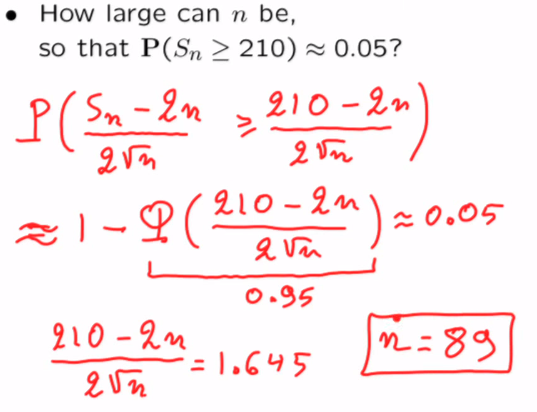 • How large can n be,
so that P(Sₙ ≥ 210) ≈ 0.05?
P( (Sₙ - 2n)/(2√n) ≥ (210 - 2n)/(2√n) )
≈ 1 - Φ( (210 - 2n)/(2√n) ) ≈ 0.05
0.95
(210 - 2n)/(2√n) = 1.645
n = 89